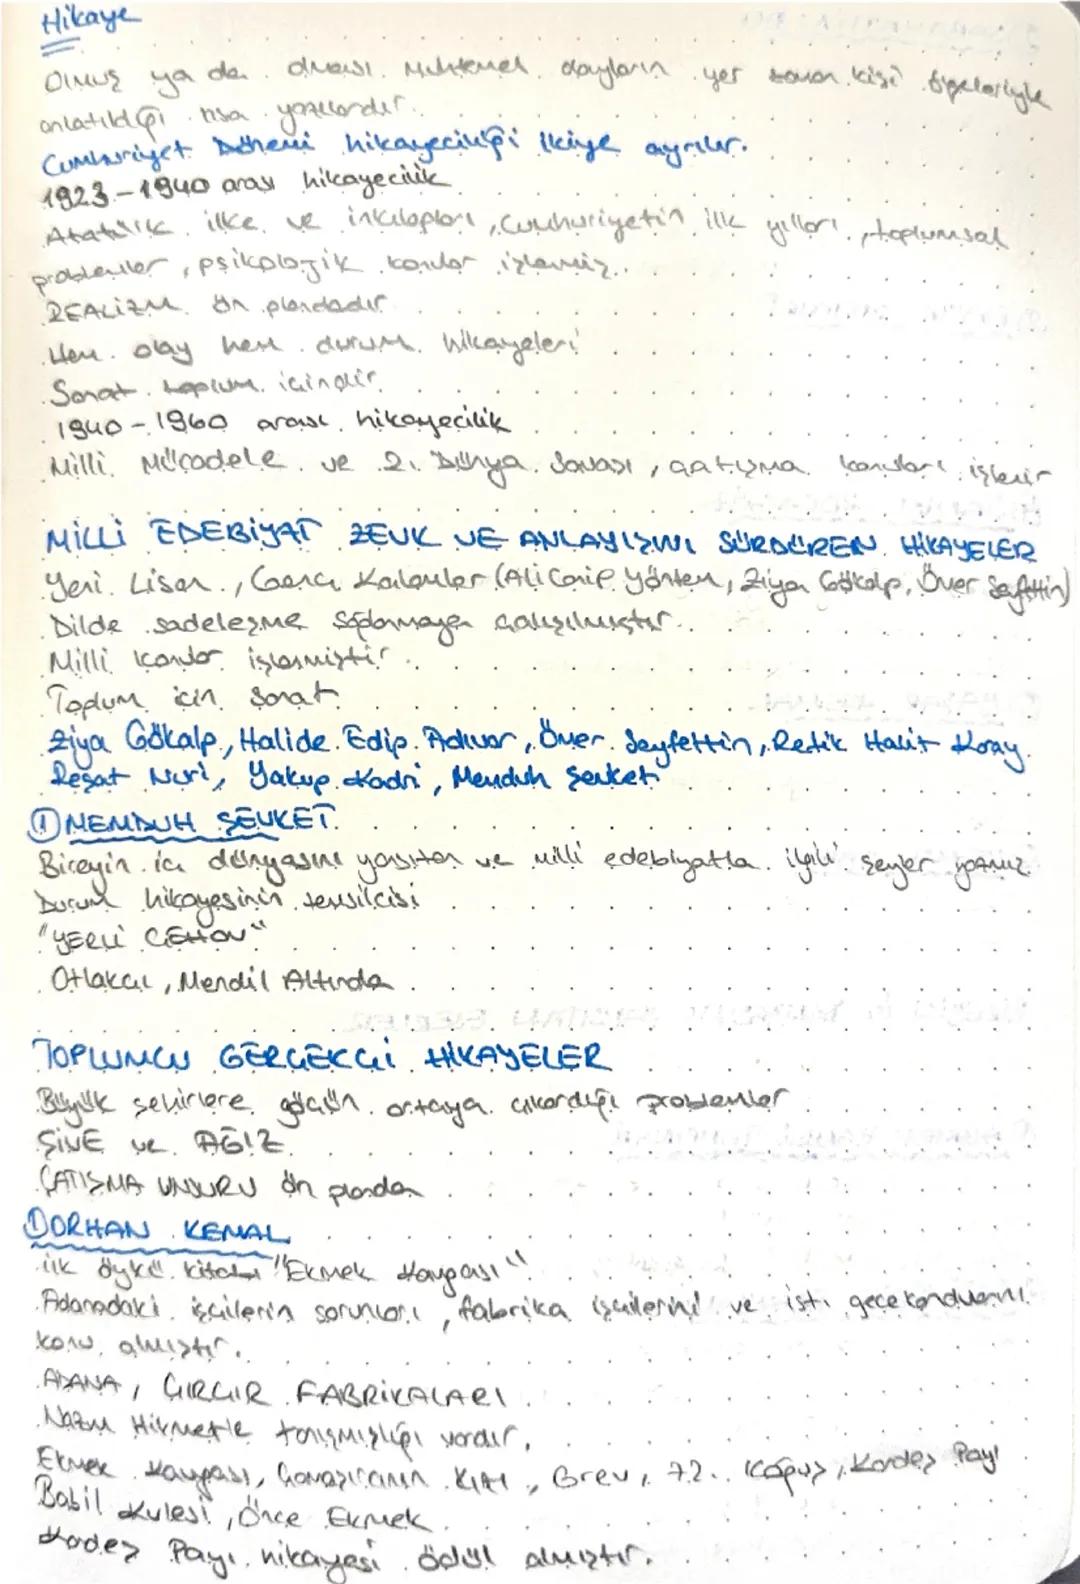 Hikaye
Olmuş ya da olması muhtemel olayların yer zaman kişi ögeleriyle
anlatıldığı kısa yazılardır.
Cumhuriyet Dönemi hikayeciliği ikiye ayrılır.
1923-1940 arası hikayecilik
Atatürk ilke ve inkılapları, Cumhuriyetin ilk yılları, toplumsal
problemler, psikolojik konular işlenmiş.
REALİZM ön plandadır.
Hem olay hem durum hikayeleri
Sanat toplum içindir.
1940-1960 arası hikayecilik
Milli Mücadele ve 2. Dünya Savaşı, çatışma konuları işlenir
MİLLİ EDEBİYAT ZEVK VE ANLAYIŞINI SÜRDÜREN HİKAYELER
Yeni Lisan, Genç Kalemler (Ali Canip Yöntem, Ziya Gökalp, Ömer Seyfettin)
Dilde sadeleşme sağlanmaya çalışılmıştır.
Milli konular işlenmiştir.
Toplum için sanat
Ziya Gökalp, Halide Edip Adıvar, Ömer Seyfettin, Refik Halit Karay
Reşat Nuri, Yakup Kadri, Memduh Şevket
① MEMDUH ŞEVKET
Bireyin iç dünyasını yansıtan ve milli edebiyatla ilgili şeyler yazmış.
Durum hikayesinin temsilcisi
"YERLİ ÇEHOV"
Otlakçı, Mendil Altında
TOPLUMCU GERÇEKÇİ HİKAYELER
Büyük şehirlere göçün ortaya çıkardığı problemler
ŞİVE ve AĞIZ
ÇATIŞMA UNSURU ön planda
① ORHAN KEMAL
İlk öykü kitabı "Ekmek Kavgası"
Adanadaki işçilerin sorunları, fabrika işçilerini ve ist. gecekondularını
konu almıştır.
ADANA, ÇIRÇIR FABRİKALARI
Nazım Hikmet'le tanışmışlığı vardır.
Ekmek Kavgası, Çamaşırcının Kızı, Grev, 72. Koğuş, Kardeş Payı
Babil Kulesi, Önce Ekmek
Kardeş Payı hikayesi ödül almıştır.